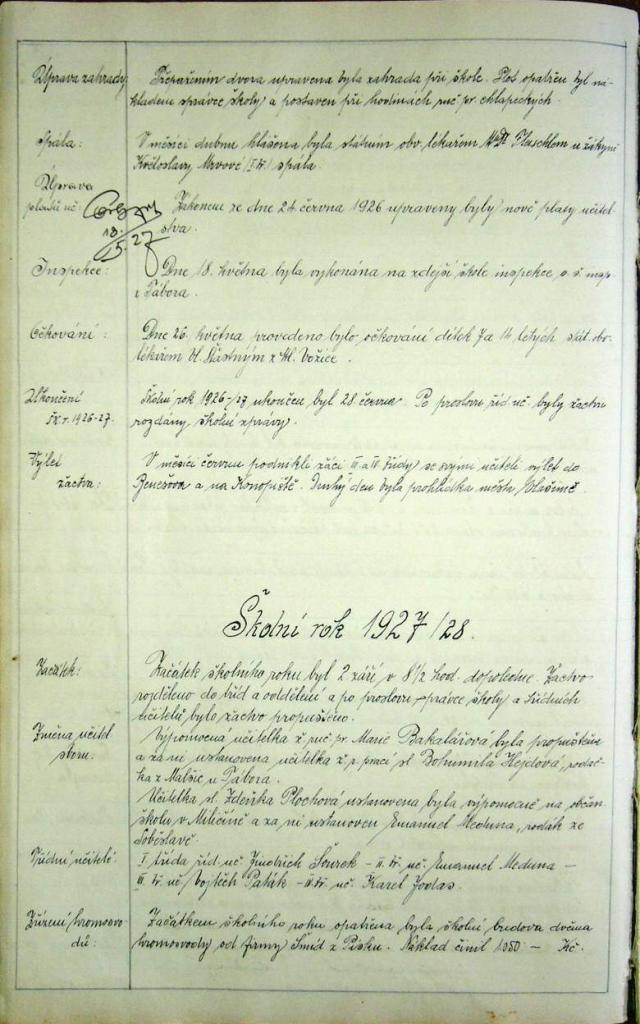 Úprava zahrady: Přepažením dvora upravena byla zahrada při škole. Plot opatřen byl ná-
kladem správce školy a postaven při hodinách ruč. pr. chlapeckých.
Spála: V měsíci dubnu hlášena byla státním obv. lékařem u žákyně
Květoslavy (I tř.) spála.
Úprava
platů uč: Zákonem ze dne 24. června 1926 upraveny byly nové platy učitel-
stva.
18./5. 27
Inspekce: Dne 18. května byla vykonána na zdejší škole inspekce o. š. insp.
z Tábora.
Očkování: Dne 26. května provedeno bylo očkování dítek 7 a 14 letých stát. obv.
lékařem Šťastným z Ml. Vožice.
Ukončení Školní rok 1926-27 ukončen byl 28 června. Po proslovu říd. uč. byly žactvu
šk. r. 1926-27. rozdány školní zprávy.
Výlet V měsíci červnu podnikli žáci III a IV třídy se svými učiteli výlet do
žactva: Benešova a na Konopiště. Druhý den byla prohlídka města Vlašimě.
Školní rok 1927/28.
Začátek: Začátek školního roku byl 2 září v 8 1/2 hod. dopoledne. Žactvo
rozděleno do tříd a oddělení a po proslovu správce školy a třídních
učitelů bylo žactvo propuštěno.
Změna učitel. Výpomocná učitelka ž. ruč. pr. Marie Bakalářová byla propuštěna
sboru: a za ni ustanovena učitelka ž. r. prací sl. Bohumila Hejdová, rodač-
ka z Malšic u Tábora.
Učitelka sl. Zdeňka Plochová ustanovena byla výpomocně na občan.
školu v Miličíně a za ni ustanoven Emanuel Meduna, rodák ze
Soběslavě.
Třídní učitelé: I třída říd. uč. Jindřich - II. tř. uč. Emanuel Meduna -
III tř. uč. Vojtěch Paták - IV. tř. uč. Karel
Zřízení hromosvo- Začátkem školního roku opatřena byla školní budova dvěma
dů: hromosvody od firmy Šmíd z Písku. Náklad činil 1350 - Kč.